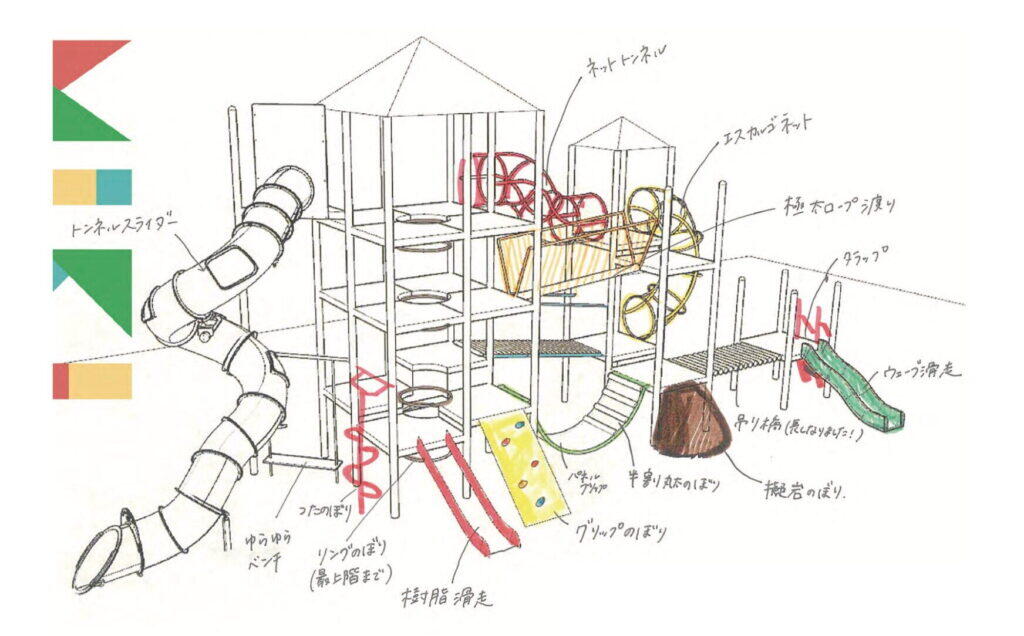 ネットトンネル
エスカルゴネット
極太ロープ渡り
トンネルスライダー
タラップ
ウェーブ滑走
吊り橋(長くなりました!)
パネルグリップ
半割り丸太のぼり
擬岩のぼり.
つたのぼり
グリップのぼり
ゆらゆら
ベンチ
リングのぼり
(最上階まで)
樹脂滑走